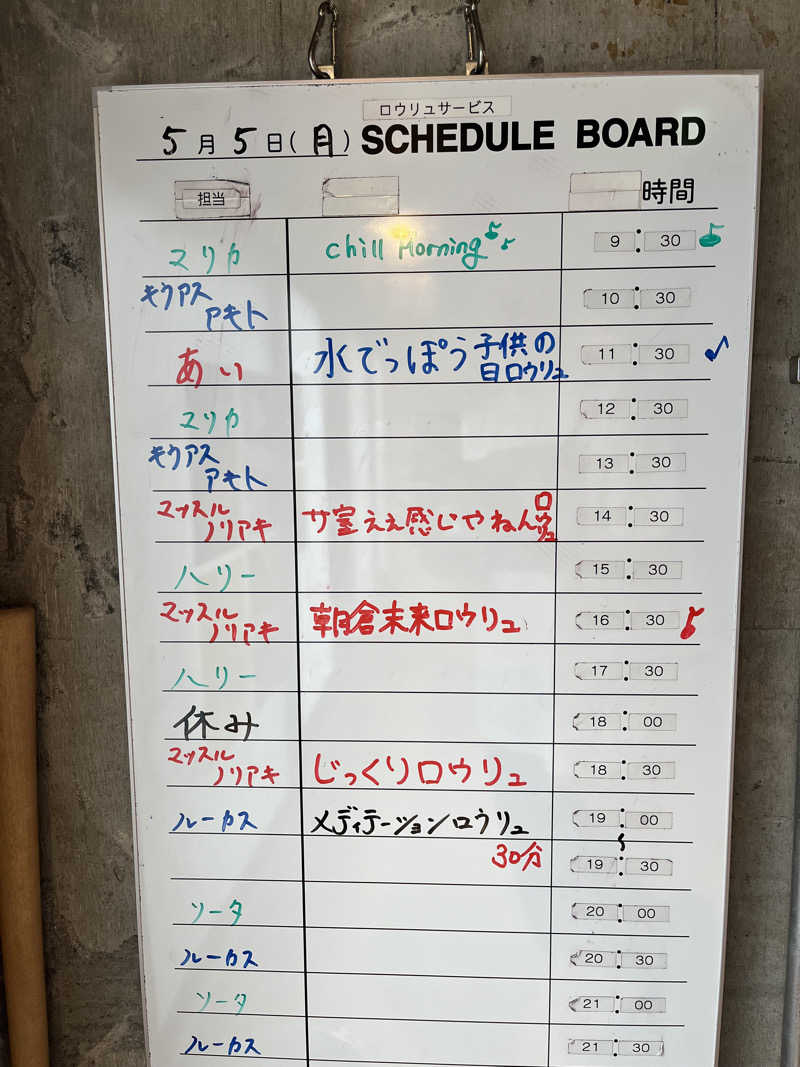 ロウリュサービス
5月5日(月) SCHEDULE BOARD
担当 時間
マリカ chill Morning 9:30
キクアス アキト 10:30
あい 水でっぽう子供の日ロウリュ 11:30
マリカ 12:30
キクアス アキト 13:30
マッスル ノリアキ サ室ええ感じやねんロウリュ 14:30
ハリー 15:30
マッスル ノリアキ 朝倉未来ロウリュ 16:30
ハリー 17:30
休み 18:00
マッスル ノリアキ じっくりロウリュ 18:30
ルーカス メディテーションロウリュ 19:00
30分 19:30
ソータ 20:00
ルーカス 20:30
ソータ 21:00
ルーカス 21:30